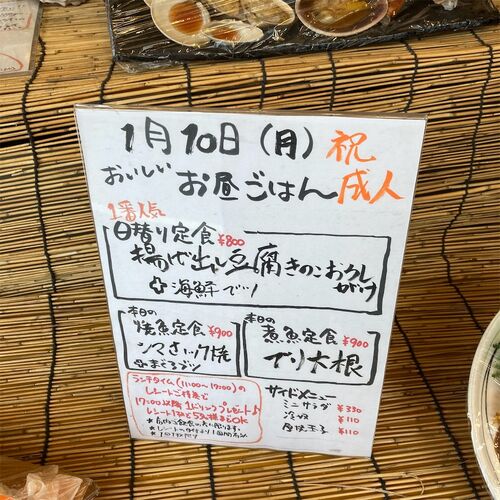 1月10日(月)祝
おいしい お昼ごはん 成人
1番人気
日替り定食 ¥800
揚げ出し豆腐きのこおろしがけ
海鮮
本日の
焼魚定食 ¥900
本日の
煮魚定食 ¥900
ぶり大根
ランチタイム(11:00〜17:00)の
レシートご持参で
17:00以降 1ドリンクプレゼント♪
レシート1枚で5名様までOK
サイドメニュー
ミニサラダ ¥330
冷奴 ¥110
¥110